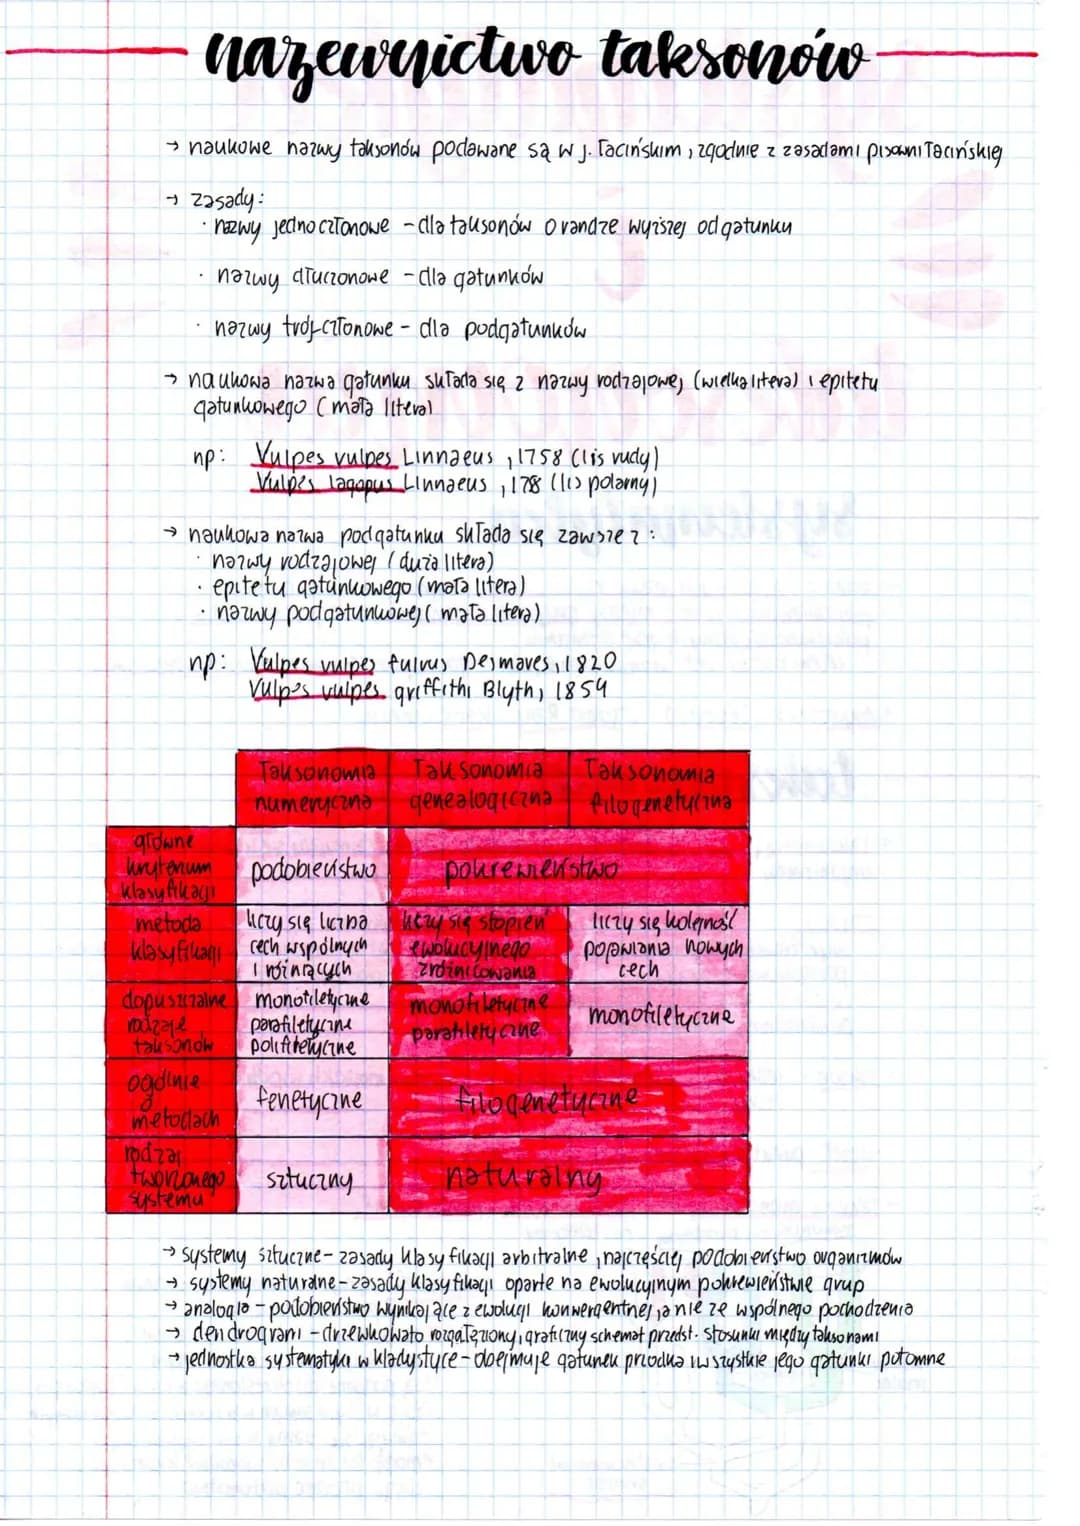 nazewnictwo taksonów
→ naukowe nazwy taksonów podawane są w j. łacińskim, zgodnie z zasadami pisowni łacińskiej
→ zasady:
· nazwy jednoczłonowe - dla taksonów o randze wyższej od gatunku
· nazwy dłuczonowe - dla gatunków
· nazwy trój-członowe - dla podgatunków
→ naukowa nazwa gatunku składa się z nazwy rodzajowej (wielka litera) i epitetu
gatunkowego (mała litera)
np: Vulpes vulpes Linnaeus, 1758 (lis rudy)
Vulpes lagopus Linnaeus, 178 (lis polarny)
→ naukowa nazwa podgatunku składa się zawsze z:
· nazwy rodzajowej (duża litera)
· epitetu gatunkowego (mała litera)
· nazwy podgatunkowej (mała litera)
np: Vulpes vulpes fulvus Desmaves, 1820
Vulpes vulpes griffithi Blyth, 1854
Taksonomia numeryczna
Taksonomia genealogiczna
Taksonomia filogenetyczna
główne kryterium klasyfikacji
podobieństwo
pokrewieństwo
metoda klasyfikacji
liczy się liczba cech wspólnych i różniących
liczy się stopień ewolucyjnego zróżnicowania
liczy się kolejność pojawiania nowych cech
dopuszczalne rodzaje taksonów
monofiletyczne parafiletyczne polifiletyczne
monofiletyczne parafiletyczne
monofiletyczne
ogólnie metodach
fenetyczne
filogenetyczne
rodzaj tworzonego systemu
sztuczny
naturalny
→ systemy sztuczne - zasady klasyfikacji arbitralne, najczęściej podobieństwo organizmów
→ systemy naturalne - zasady klasyfikacji oparte na ewolucyjnym pokrewieństwie grup
→ analogia - podobieństwo wynikające z ewolucji konwergentnej, a nie ze wspólnego pochodzenia
→ dendrogram - drzewkowato rozgałęziony, graficzny schemat przedst. stosunki między taksonami
→ jednostka systematyki w kladystyce - obejmuje gatunek przodka i wszystkie jego gatunki potomne